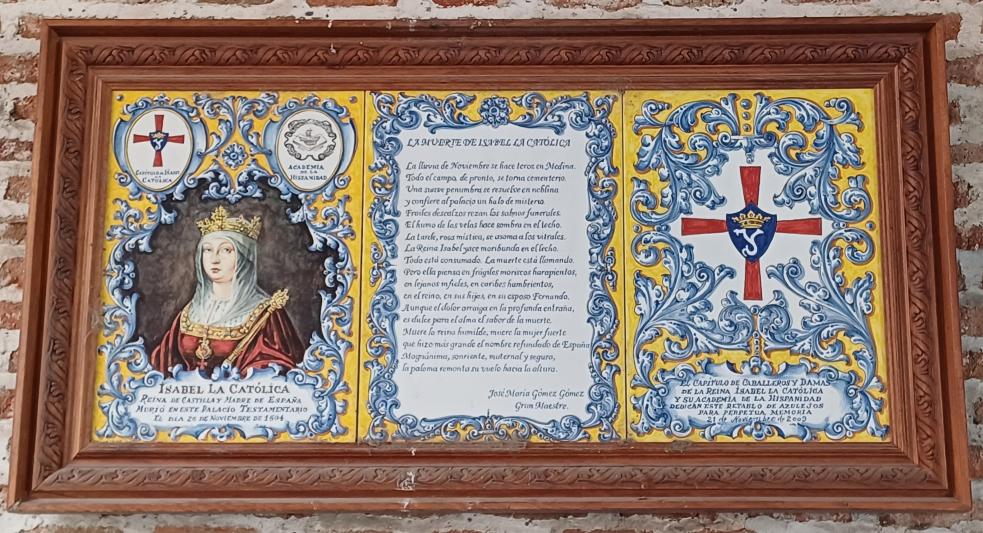 CAPÍTULO DE ISABEL
LA
CATÓLICA
ACADEMIA
DE LA
HISPANIDAD
ISABEL LA CATÓLICA
REINA DE CASTILLA Y MADRE DE ESPAÑA
MURIÓ EN ESTE PALACIO TESTAMENTARIO
EL DIA 26 DE NOVIEMBRE DE 1504
LA MUERTE DE ISABEL LA CATÓLICA
La lluvia de Noviembre se hace terca en Medina.
Todo el campo, de pronto, se torna cementerio.
Una suave penumbra se resuelve en neblina
y confiere al palacio un halo de misterio.
Frailes descalzos rezan los salmos funerales.
El humo de las velas hace sombra en el techo.
La tarde, rosa mística, se asoma a los vitrales.
La Reina Isabel yace moribunda en el lecho.
Todo está consumado. La muerte está llamando.
Pero ella piensa en frágiles moriscos harapientos,
en lejanos infieles, en caribes hambrientos,
en el reino, en sus hijos, en su esposo Fernando.
Aunque el dolor arraiga en la profunda entraña,
es dulce para el alma el sabor de la muerte.
Muere la reina humilde, muere la mujer fuerte
que hizo más grande el nombre refundado de España
Magnánima, sonriente, maternal y segura,
la paloma remonta su vuelo hacia la altura.
José María Gómez Gómez
Gran Maestre.
EL CAPÍTULO DE CABALLEROS Y DAMAS
DE LA REINA ISABEL LA CATÓLICA
Y SU ACADEMIA DE LA HISPANIDAD
DEDICAN ESTE RETABLO DE AZULEJOS
PARA PERPETUA MEMORIA
21 de Noviembre de 2009